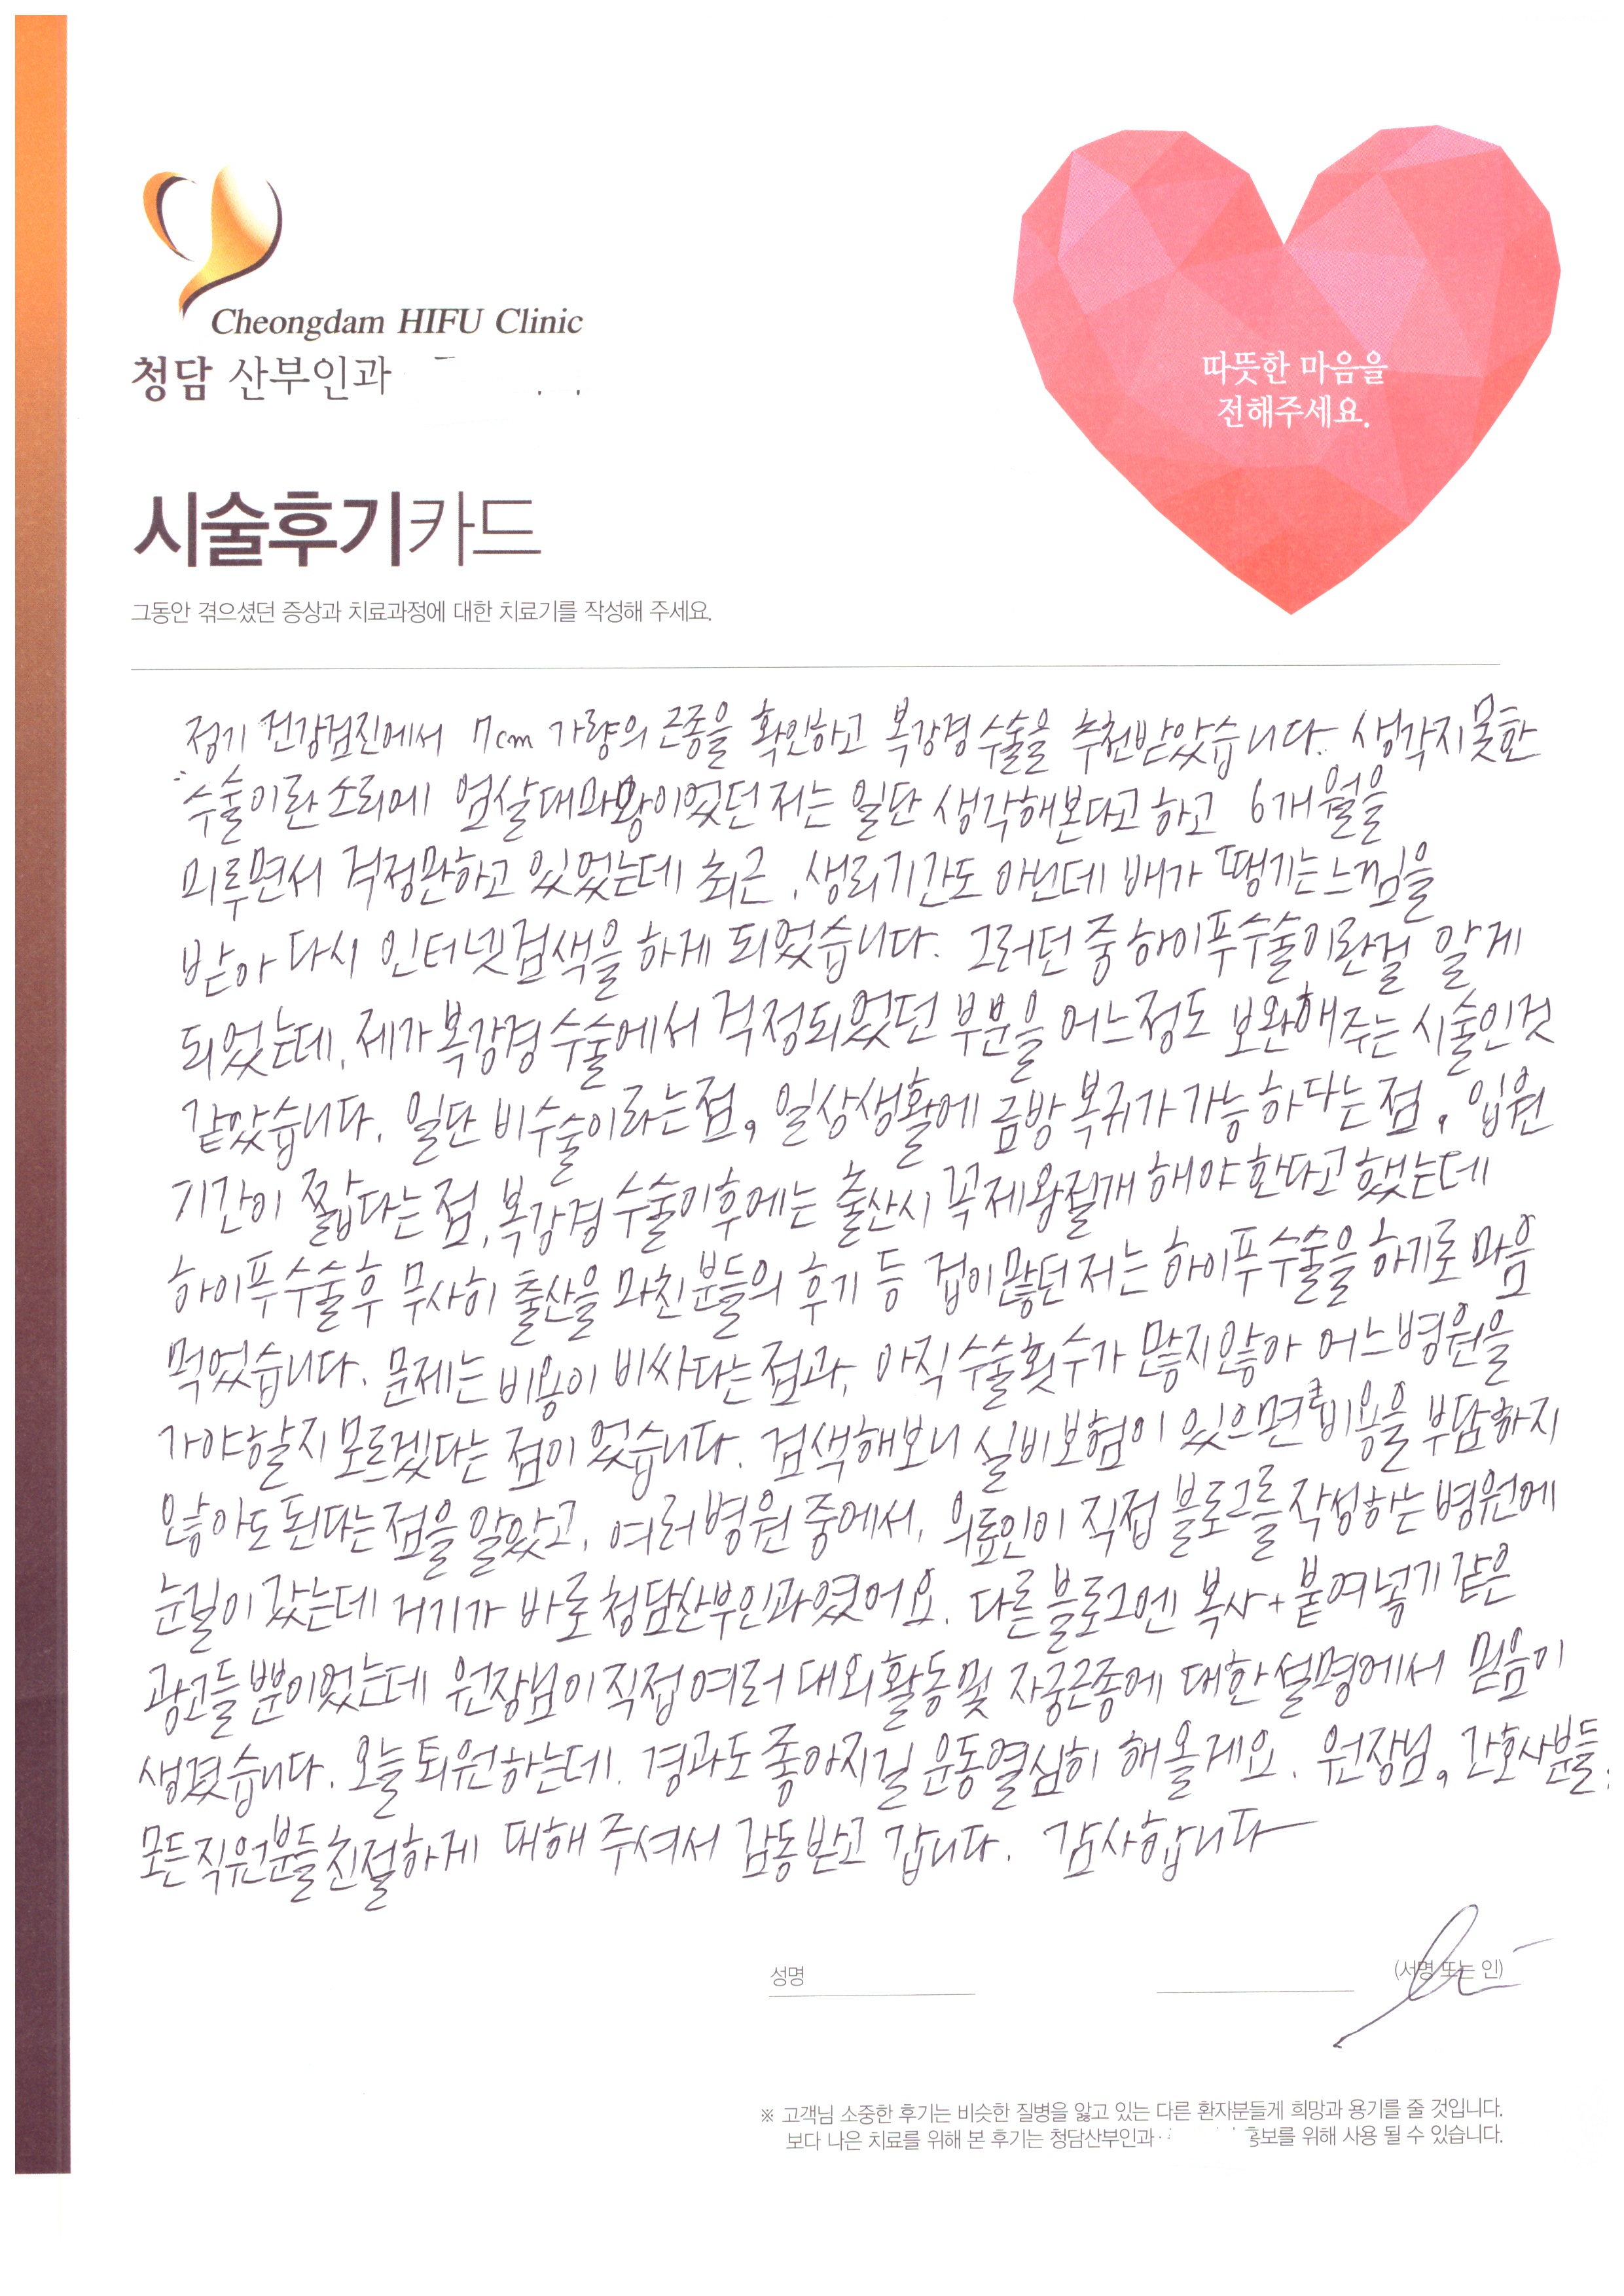 Cheongdam HIFU Clinic
청담 산부인과
따뜻한 마음을
전해주세요.
시술후기카드
그동안 겪으셨던 증상과 치료과정에 대한 치료기를 작성해 주세요.
정기 건강검진에서 7cm 가량의 근종을 확인하고 복강경 수술을 추천받았습니다. 생각지 못한
수술이란 소리에 엄살대마왕이었던 저는 일단 생각해본다고 하고 6개월을
미루면서 걱정만하고 있었는데 최근, 생리기간도 아닌데 배가 땡기는 느낌을
받아 다시 인터넷 검색을 하게 되었습니다. 그러던 중 하이푸수술이란걸 알게
되었는데, 제가 복강경 수술에서 걱정되었던 부분을 어느정도 보완해주는 시술인것
같았습니다. 일단 비수술이라는 점, 일상생활에 금방 복귀가 가능하다는 점, 입원
기간이 짧다는 점, 복강경 수술이후에는 출산시 꼭 제왕절개 해야 한다고 했는데
하이푸수술 후 무사히 출산을 마친 분들의 후기 등 겁이많던 저는 하이푸수술을 하기로 마음
먹었습니다. 문제는 비용이 비싸다는 점과, 아직 수술횟수가 많지않아 어느병원을
가야할지 모르겠다는 점이었습니다. 검색해보니 실비보험이 있으면 비용을 부담하지
않아도 된다는 점을 알았고, 여러병원 중에서, 의료인이 직접 블로그를 작성하는 병원에
눈길이 갔는데 거기가 바로 청담산부인과였어요. 다른 블로그엔 복사+붙여넣기 같은
광고들 뿐이었는데 원장님이 직접 여러 대외활동 및 자궁근종에 대한 설명에서 믿음이
생겼습니다. 오늘 퇴원하는데. 경과도 좋아지길 운동열심히 해올게요. 원장님, 간호사분들,
모든 직원분들 친절하게 대해 주셔서 감동받고 갑니다. 감사합니다
성명 (서명 또는 인)
※ 고객님 소중한 후기는 비슷한 질병을 앓고 있는 다른 환자분들게 희망과 용기를 줄 것입니다.
보다 나은 치료를 위해 본 후기는 청담산부인과 홍보를 위해 사용 될 수 있습니다.